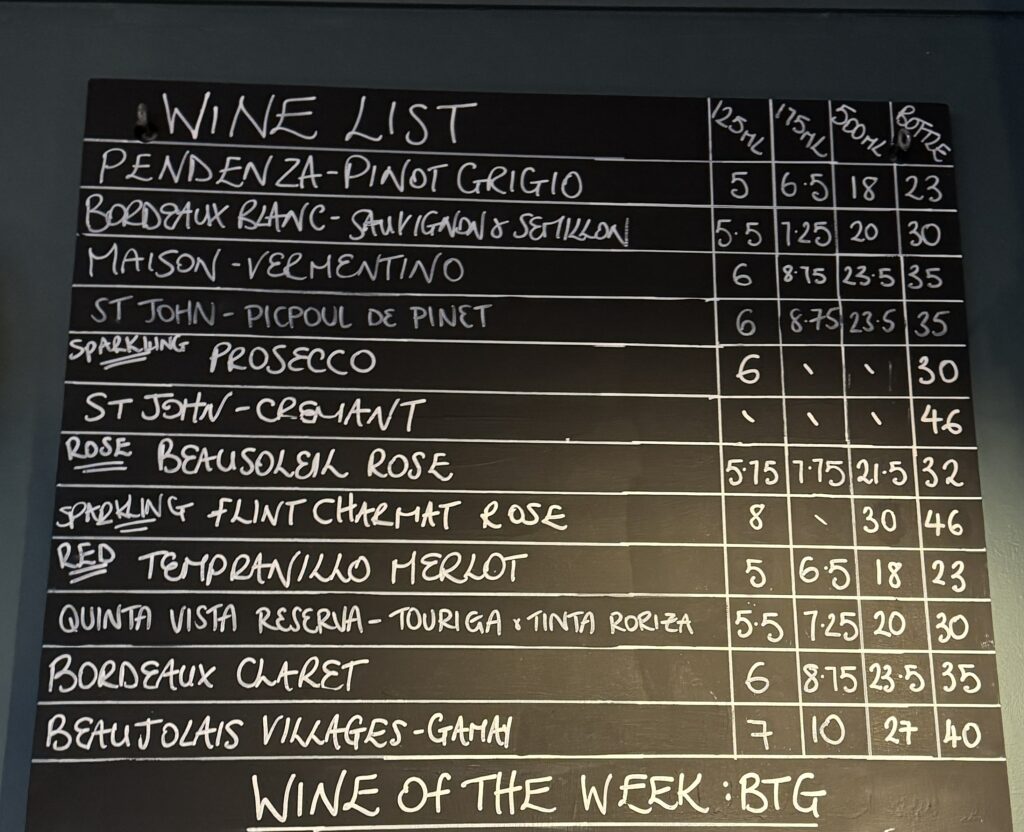 WINE LIST 125ML 175ML 500ML BOTTLE
PENDENZA-PINOT GRIGIO 5 6.5 18 23
BORDEAUX BLANC- SAUVIGNON & SEMILLON 5.5 7.25 20 30
MAISON -VERMENTINO 6 8.75 23.5 35
ST JOHN - PICPOUL DE PINET 6 8.75 23.5 35
SPARKLING PROSECCO 6 - - 30
ST JOHN-CREMANT - - - 46
ROSE BEAUSOLEIL ROSE 5.75 7.75 21.5 32
SPARKLING FLINT CHARMAT ROSE 8 - 30 46
RED TEMPRANILLO MERLOT 5 6.5 18 23
QUINTA VISTA RESERVA- TOURIGA & TINTA RORIZA 5.5 7.25 20 30
BORDEAUX CLARET 6 8.75 23.5 35
BEAUJOLAIS VILLAGES-GAMAY 7 10 27 40
WINE OF THE WEEK : BTG